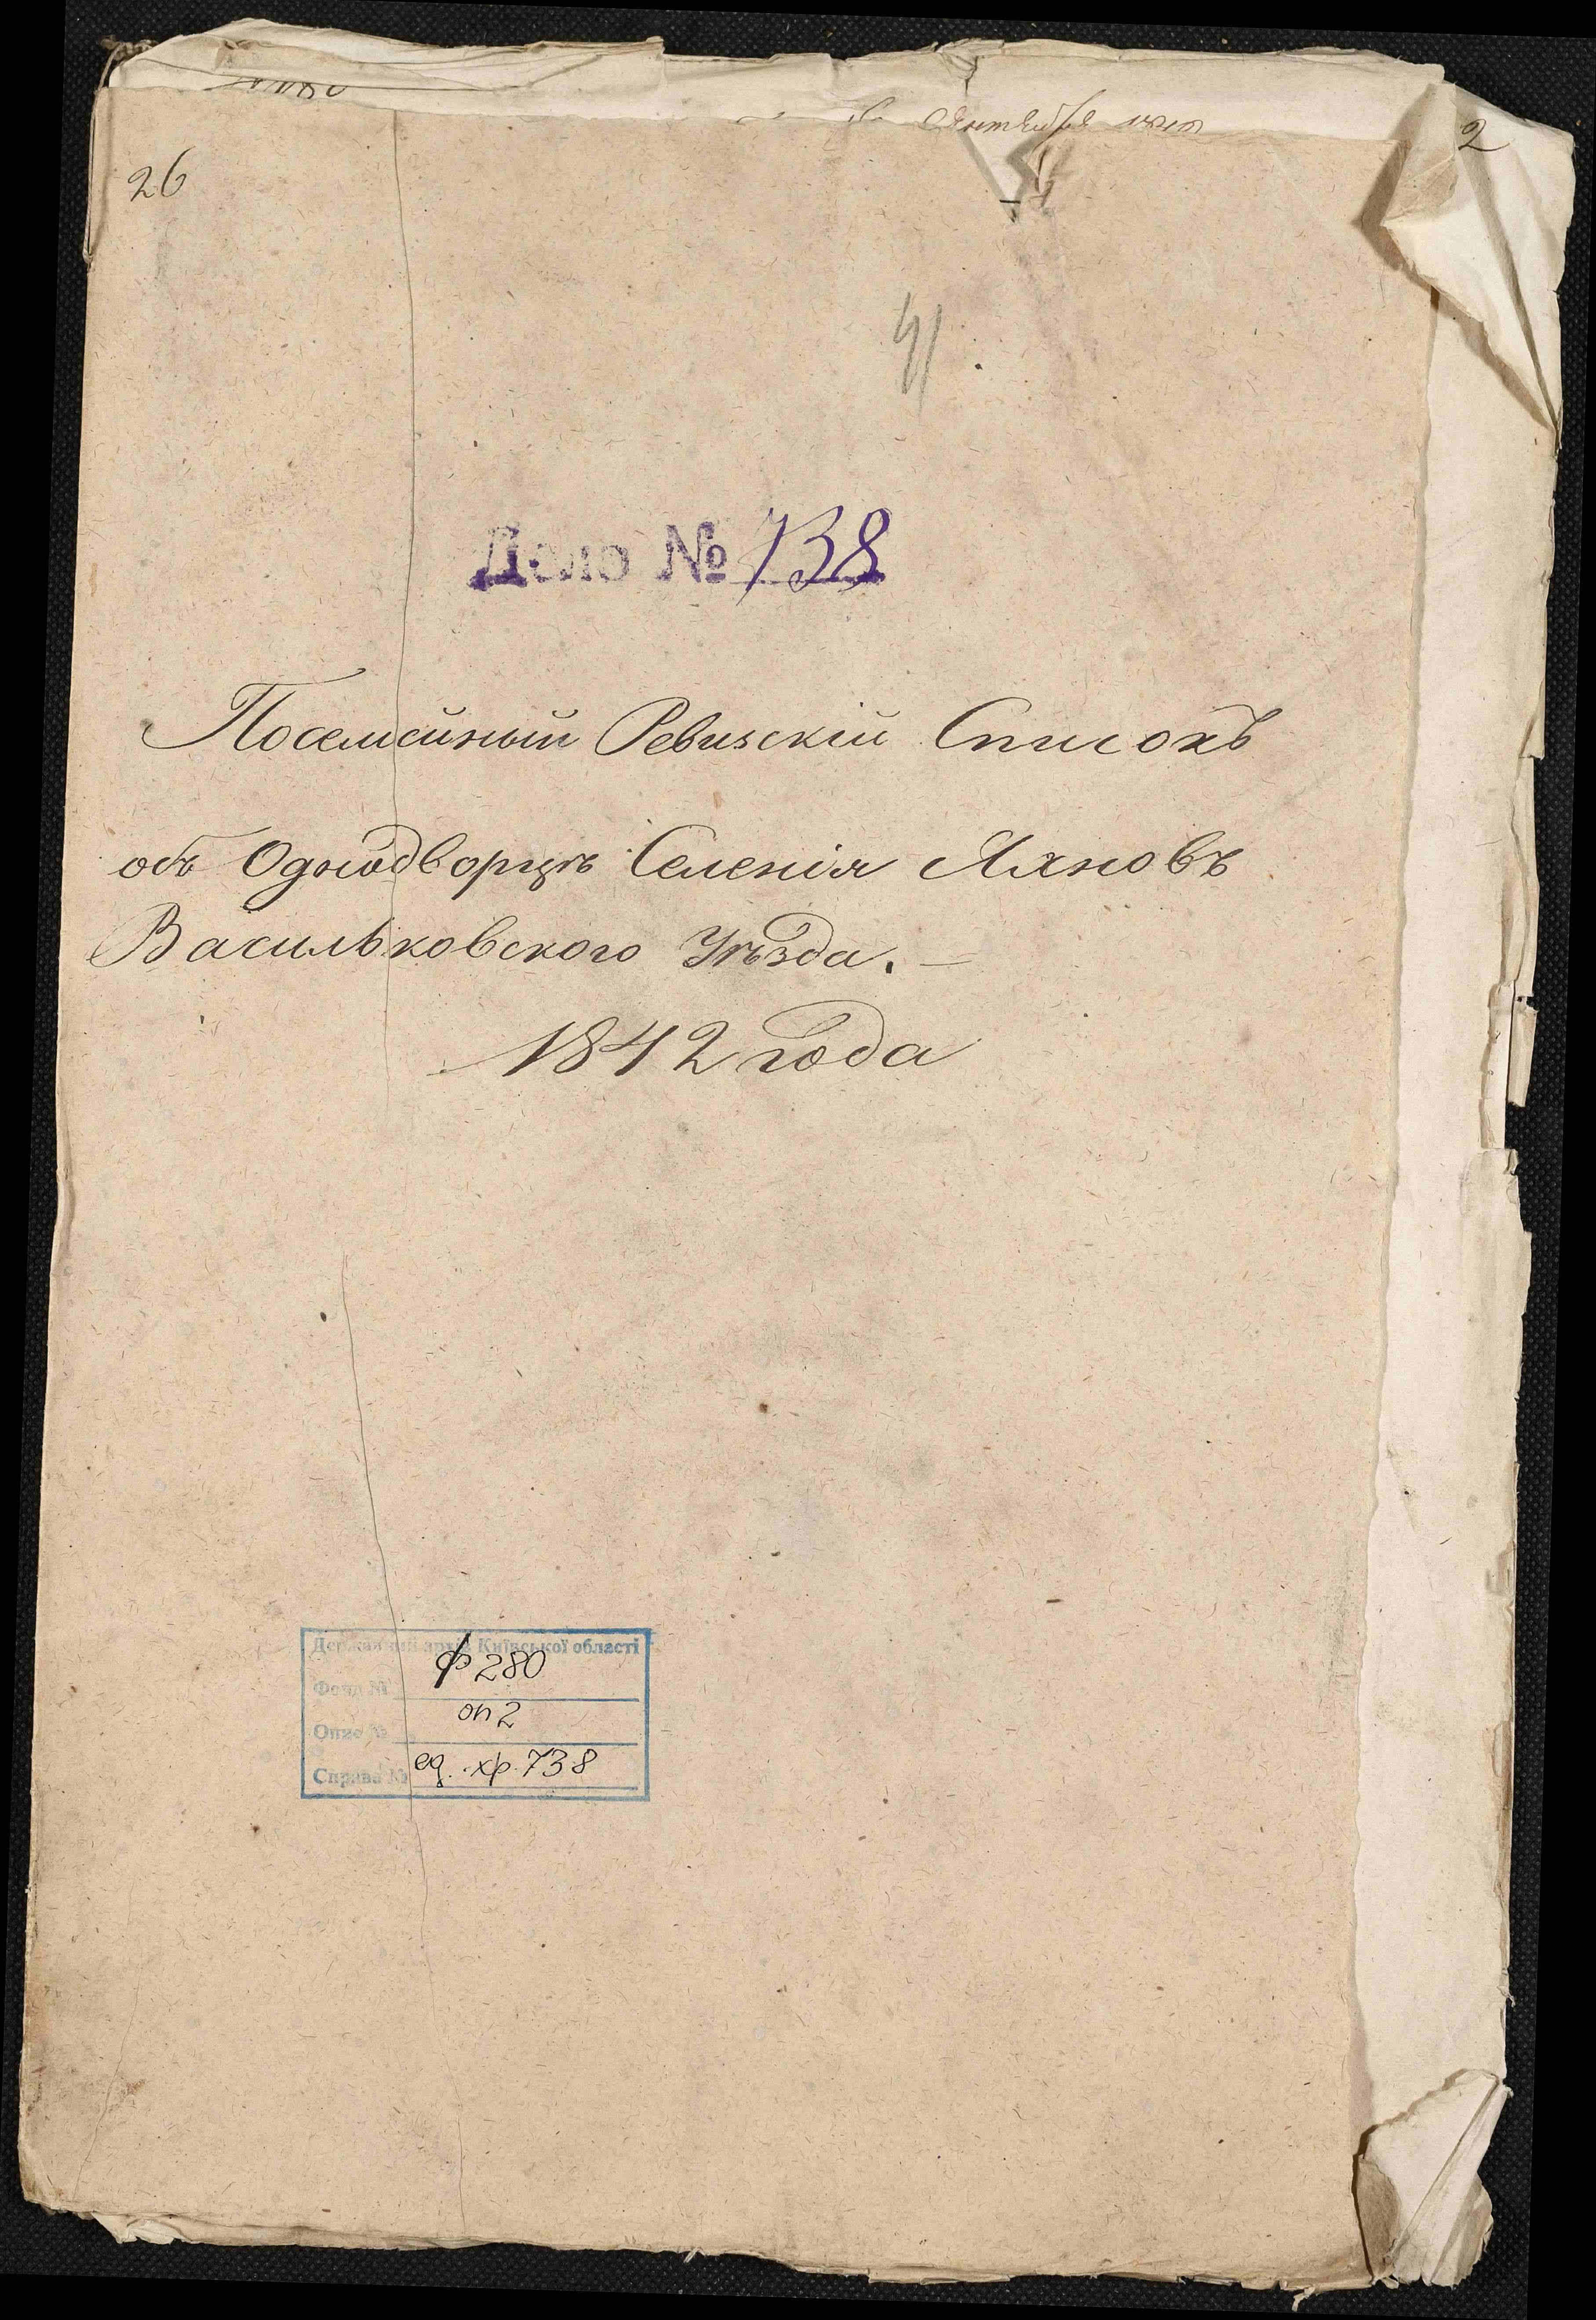 Сентября
2
26
41.
Дело № 738
Посемейный Ревизскій Списокъ
объ Однодворцѣ Селенія Ляховъ
Васильковского Уѣзда. —
1842 года
Державний архів Київської області
Фонд № ф 280
Опис № оп 2
Справа № ед. хр. 738